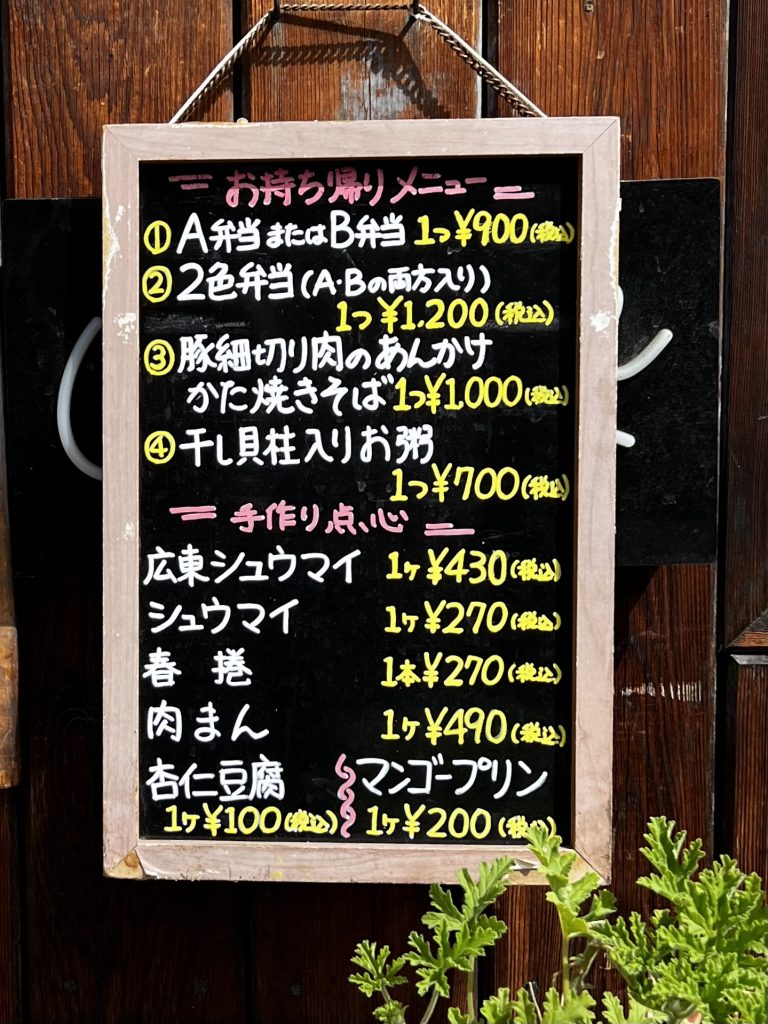 お持ち帰りメニュー
① A弁当またはB弁当 1つ¥900(税込)
② 2色弁当(A・Bの両方入り)
1つ¥1,200(税込)
③ 豚細切り肉のあんかけ
かた焼きそば 1つ¥1,000(税込)
④ 干し貝柱入りお粥
1つ¥700(税込)
手作り点心
広東シュウマイ 1ヶ¥430(税込)
シュウマイ 1ヶ¥270(税込)
春捲 1本¥270(税込)
肉まん 1ヶ¥490(税込)
杏仁豆腐 マンゴープリン
1ヶ¥100(税込) 1ヶ¥200(税込)